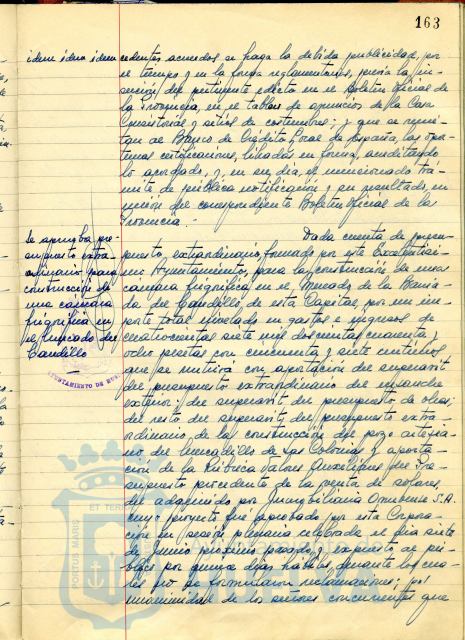 163
idem idem idem
cedentes acuerdos se haga la debida publicidad, por
el tiempo y en la forma reglamentarios, previa la in-
serción del pertinente edicto en el Boletín Oficial de
la Provincia, en el tablón de anuncios de la Casa
Consistorial y sitios de costumbre; y que se remi-
tan al Banco de Crédito Local de España, las opor-
tunas certificaciones, libradas en forma, acreditando
lo acordado, y, en su día, el mencionado trá-
mite de pública notificación y su resultado, en
unión del correspondiente Boletín Oficial de la
Provincia.-
Se aprueba pre-
supuesto extra-
ordinario para
construcción de
una cámara
frigorífica en
el Mercado del
Caudillo
AYUNTAMIENTO DE HUE
Dada cuenta de presu-
puesto extraordinario, formado por este Excelentísi-
mo Ayuntamiento, para la construcción de una
cámara frigorífica en el Mercado de la Barria-
da del Caudillo de esta Capital, por un im-
porte total nivelado en gastos e ingresos de
cuatrocientas siete mil doscientas cincuenta y
ocho pesetas con cincuenta y siete céntimos
que se nutrirá con aportación del superavit
del presupuesto extraordinario del ensanche
exterior; del superavit del presupuesto de obras;
del resto del superavit del presupuesto extra-
ordinario de la construcción del pozo artesia-
no del Mercadillo de Las Colonias y aporta-
ción de la Rúbrica Valores Auxiliares del Pre-
supuesto procedente de la venta de solares,
del adquirido por Inmobiliaria Onubense S.A.
cuyo proyecto fué aprobado por esta Corpora-
ción en sesión plenaria celebrada el día siete
de Junio próximo pasado y expuesto al pú-
blico por quince días hábiles durante los cua-
les no se formularon reclamaciones; por
unanimidad de los señores concurrentes que
PORTUS MARIS ET TERR